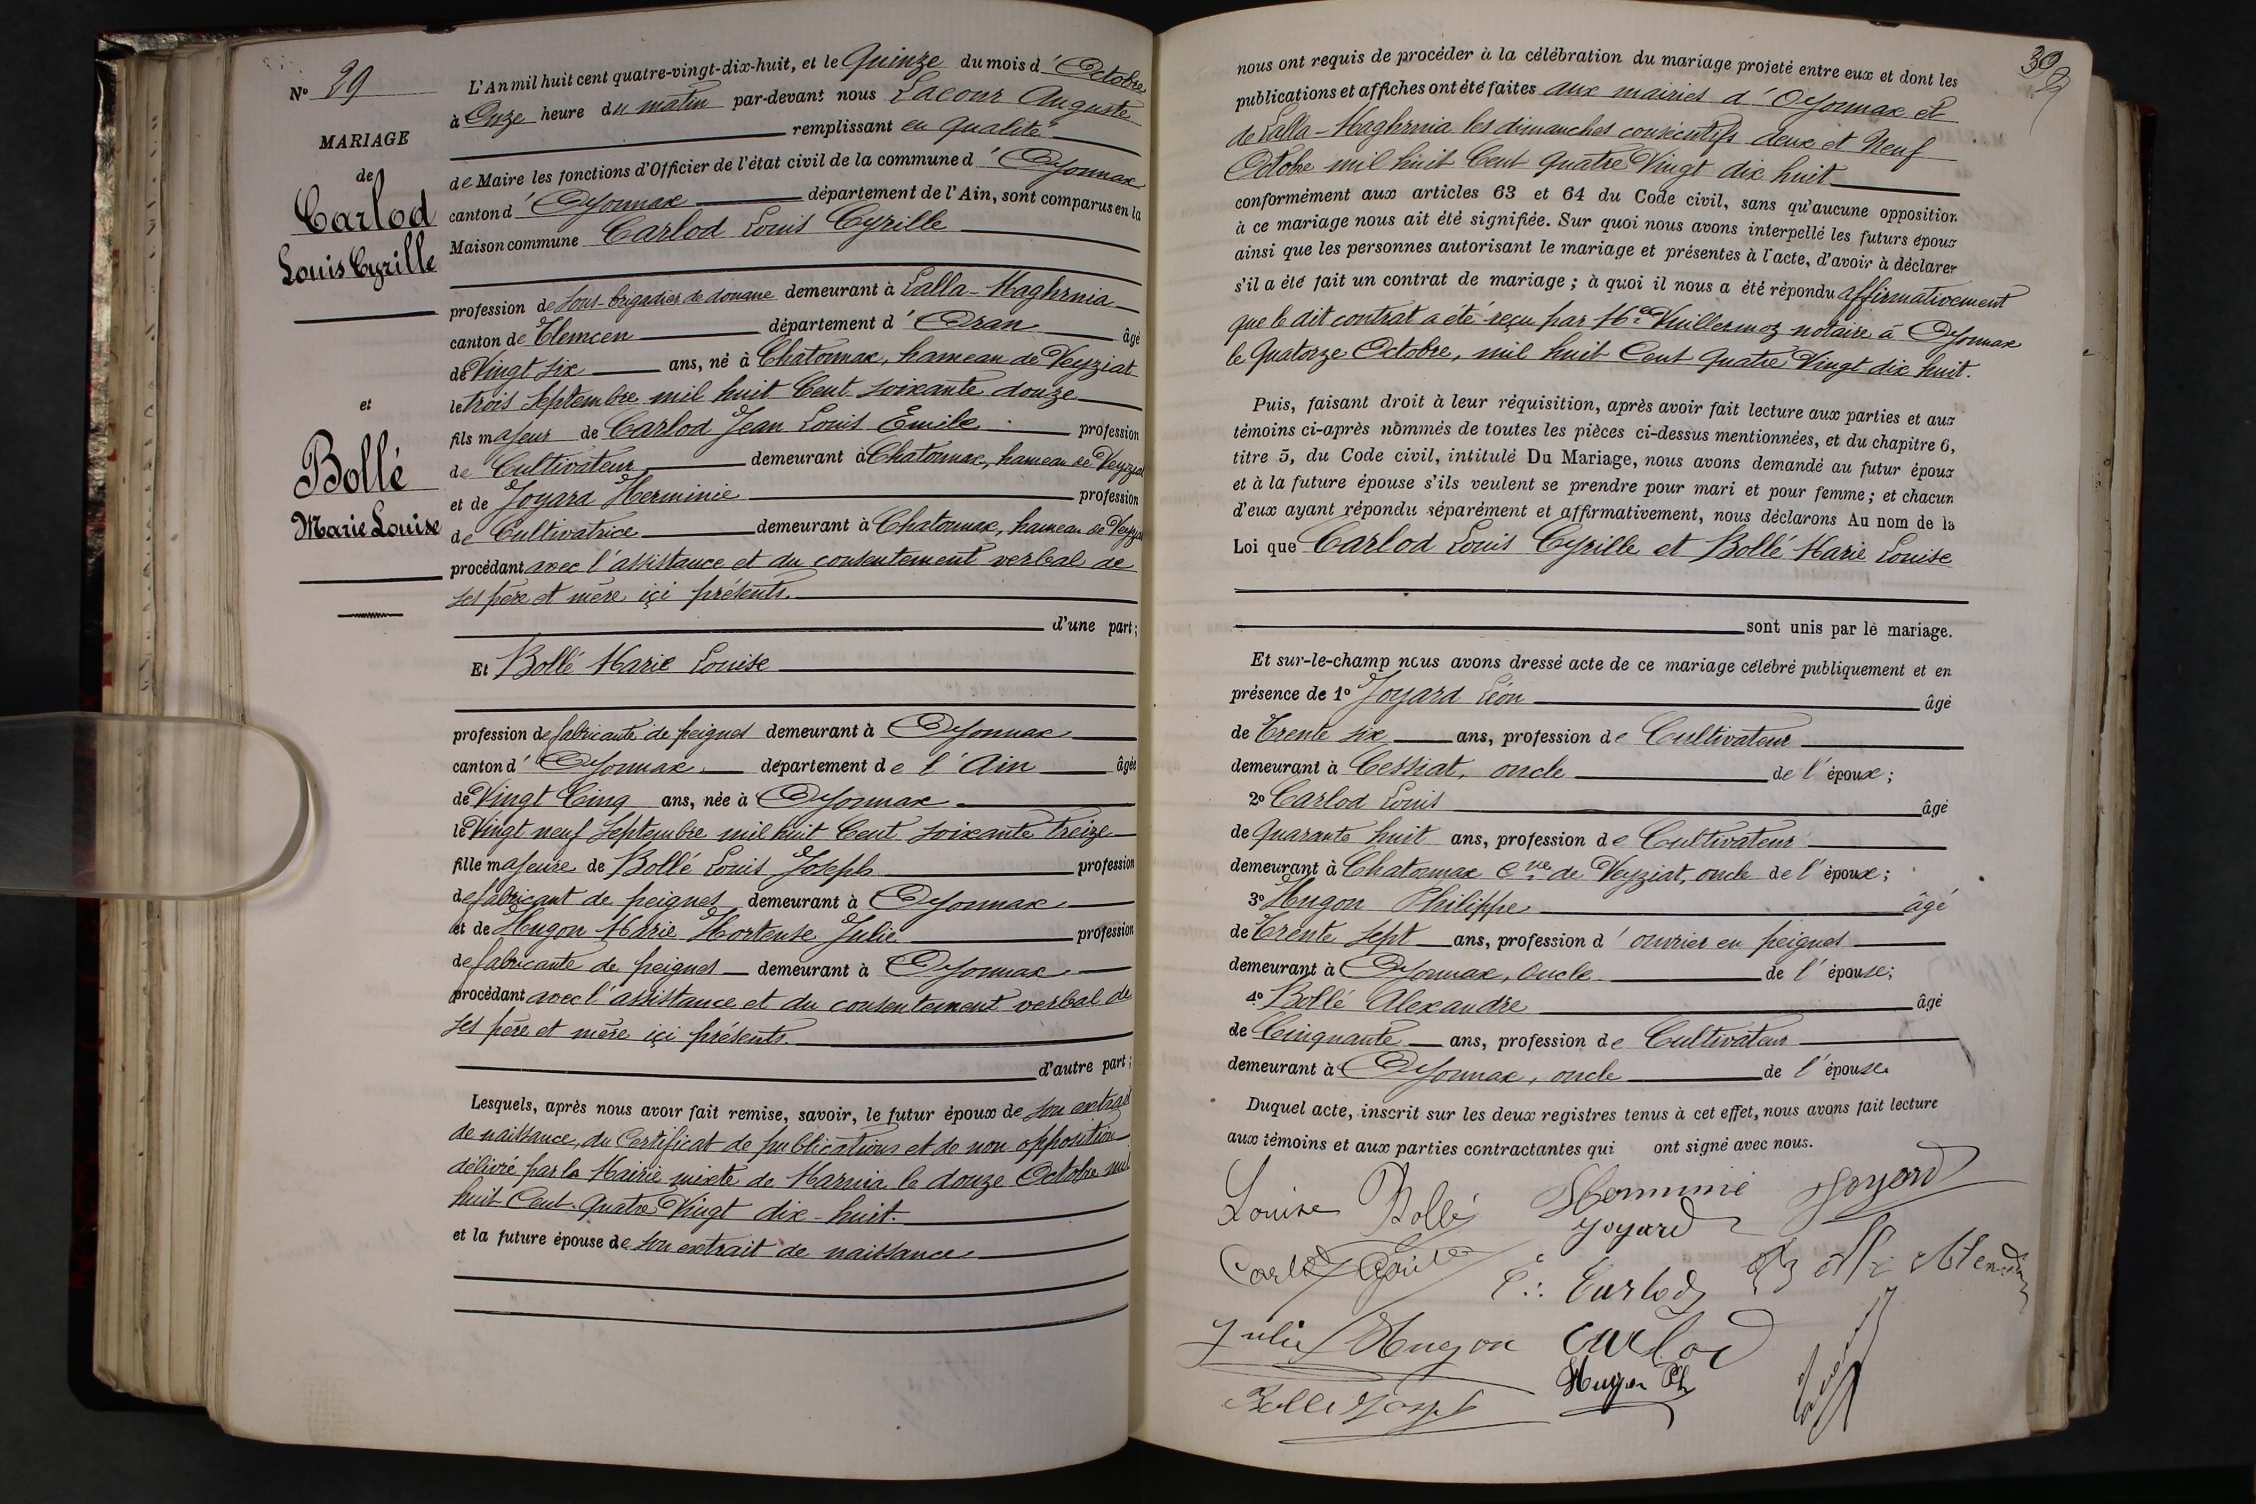 Nº 29
MARIAGE
de
Carlod
Louis Cyrille
et
Bollé
Marie Louise
L'An mil huit cent quatre-vingt-dix-huit, et le Quinze du mois d'Octobre
à Onze heure du matin par-devant nous Lacour Auguste
remplissant en qualité
de Maire les fonctions d'Officier de l'état civil de la commune d'Oyonnax
canton d'Oyonnax département de l'Ain, sont comparus en la
Maison commune Carlod Louis Cyrille
profession de sous-brigadier de douane demeurant à Lalla-Maghrnia
canton de Tlemcen département d'Oran âgé
de Vingt six ans, né à Chatonnax, hameau de Veyziat
le trois Septembre mil huit Cent soixante douze
fils majeur de Carlod Jean Louis Emile profession
de Cultivateur demeurant à Chatonnax, hameau de Veyziat
et de Joyard Herminie profession
de Cultivatrice demeurant à Chatonnax, hameau de Veyziat
procédant avec l'assistance et du consentement verbal de
ses père et mère içi présents.
d'une part;
Et Bollé Marie Louise
profession de fabricante de peignes demeurant à Oyonnax
canton d'Oyonnax département de l'Ain âgée
de Vingt Cinq ans, née à Oyonnax
le Vingt neuf Septembre mil huit Cent soixante treize
fille majeure de Bollé Louis Joseph profession
de fabricant de peignes demeurant à Oyonnax
et de Hugon Marie Hortense Julie profession
de fabricante de peignes demeurant à Oyonnax
procédant avec l'assistance et du consentement verbal de
ses père et mère içi présents.
d'autre part;
Lesquels, après nous avoir fait remise, savoir, le futur époux de son extrait
de naissance, du Certificat de publications et de non opposition
délivré par la Mairie mixte de Marnia le douze Octobre mil
huit Cent quatre Vingt dix-huit.
et la future épouse de son extrait de naissance
39
nous ont requis de procéder à la célébration du mariage projeté entre eux et dont les
publications et affiches ont été faites aux mairies d'Oyonnax et
de Lalla-Maghrnia les dimanches consécutifs deux et Neuf
Octobre mil huit Cent quatre Vingt dix huit
conformément aux articles 63 et 64 du Code civil, sans qu'aucune opposition
à ce mariage nous ait été signifiée. Sur quoi nous avons interpellé les futurs époux
ainsi que les personnes autorisant le mariage et présentes à l'acte, d'avoir à déclarer
s'il a été fait un contrat de mariage; à quoi il nous a été répondu affirmativement
que le dit contrat a été reçu par Me Vuillermoz notaire à Oyonnax
le quatorze Octobre, mil huit Cent quatre Vingt dix huit.
Puis, faisant droit à leur réquisition, après avoir fait lecture aux parties et aux
témoins ci-après nommés de toutes les pièces ci-dessus mentionnées, et du chapitre 6,
titre 5, du Code civil, intitulé Du Mariage, nous avons demandé au futur époux
et à la future épouse s'ils veulent se prendre pour mari et pour femme; et chacun
d'eux ayant répondu séparément et affirmativement, nous déclarons Au nom de la
Loi que Carlod Louis Cyrille et Bollé Marie Louise
sont unis par le mariage.
Et sur-le-champ nous avons dressé acte de ce mariage célébré publiquement et en
présence de 1º Joyard Léon âgé
de Trente six ans, profession de Cultivateur
demeurant à Cessiat, oncle de l'époux;
2º Carlod Louis âgé
de quarante huit ans, profession de Cultivateur
demeurant à Chatonnax Cne de Veyziat, oncle de l'époux;
3º Hugon Philippe âgé
de Trente sept ans, profession d'ouvrier en peignes
demeurant à Oyonnax, oncle de l'épouse;
4º Bollé Alexandre âgé
de Cinquante ans, profession de Cultivateur
demeurant à Oyonnax, oncle de l'épouse.
Duquel acte, inscrit sur les deux registres tenus à cet effet, nous avons fait lecture
aux témoins et aux parties contractantes qui ont signé avec nous.
Louise Bollé Herminie Joyard
Joyard
Carlod
E. Carlod
Julie Hugon Carlod
Hugon Ph
Bollé Joseph